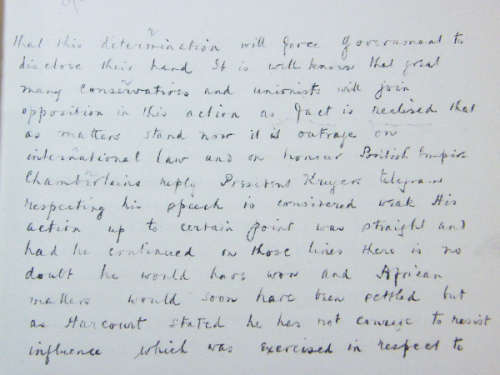 that this determination will force Government to
disclose their hand It is well known that great
many conservatives and unionists will join
opposition in this action as fact is realised that
as matters stand now it is outrage on
international law and on honour British Empire
Chamberlains reply President Krugers telegram
respecting his speech is considered weak His
action up to certain point was straight and
had he continued on those lines there is no
doubt he would have won and African
matters would soon have been settled but
as Harcourt stated he has not courage to resist
influence which was exercised in respect to